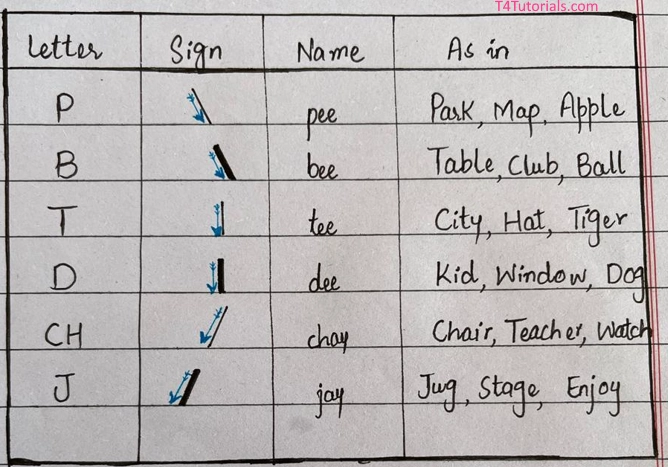 T4Tutorials.com
Letter Sign Name As in
P pee Park, Map, Apple
B bee Table, Club, Ball
T tee City, Hat, Tiger
D dee Kid, Window, Dog
CH chay Chair, Teacher, Watch
J jay Jug, Stage, Enjoy